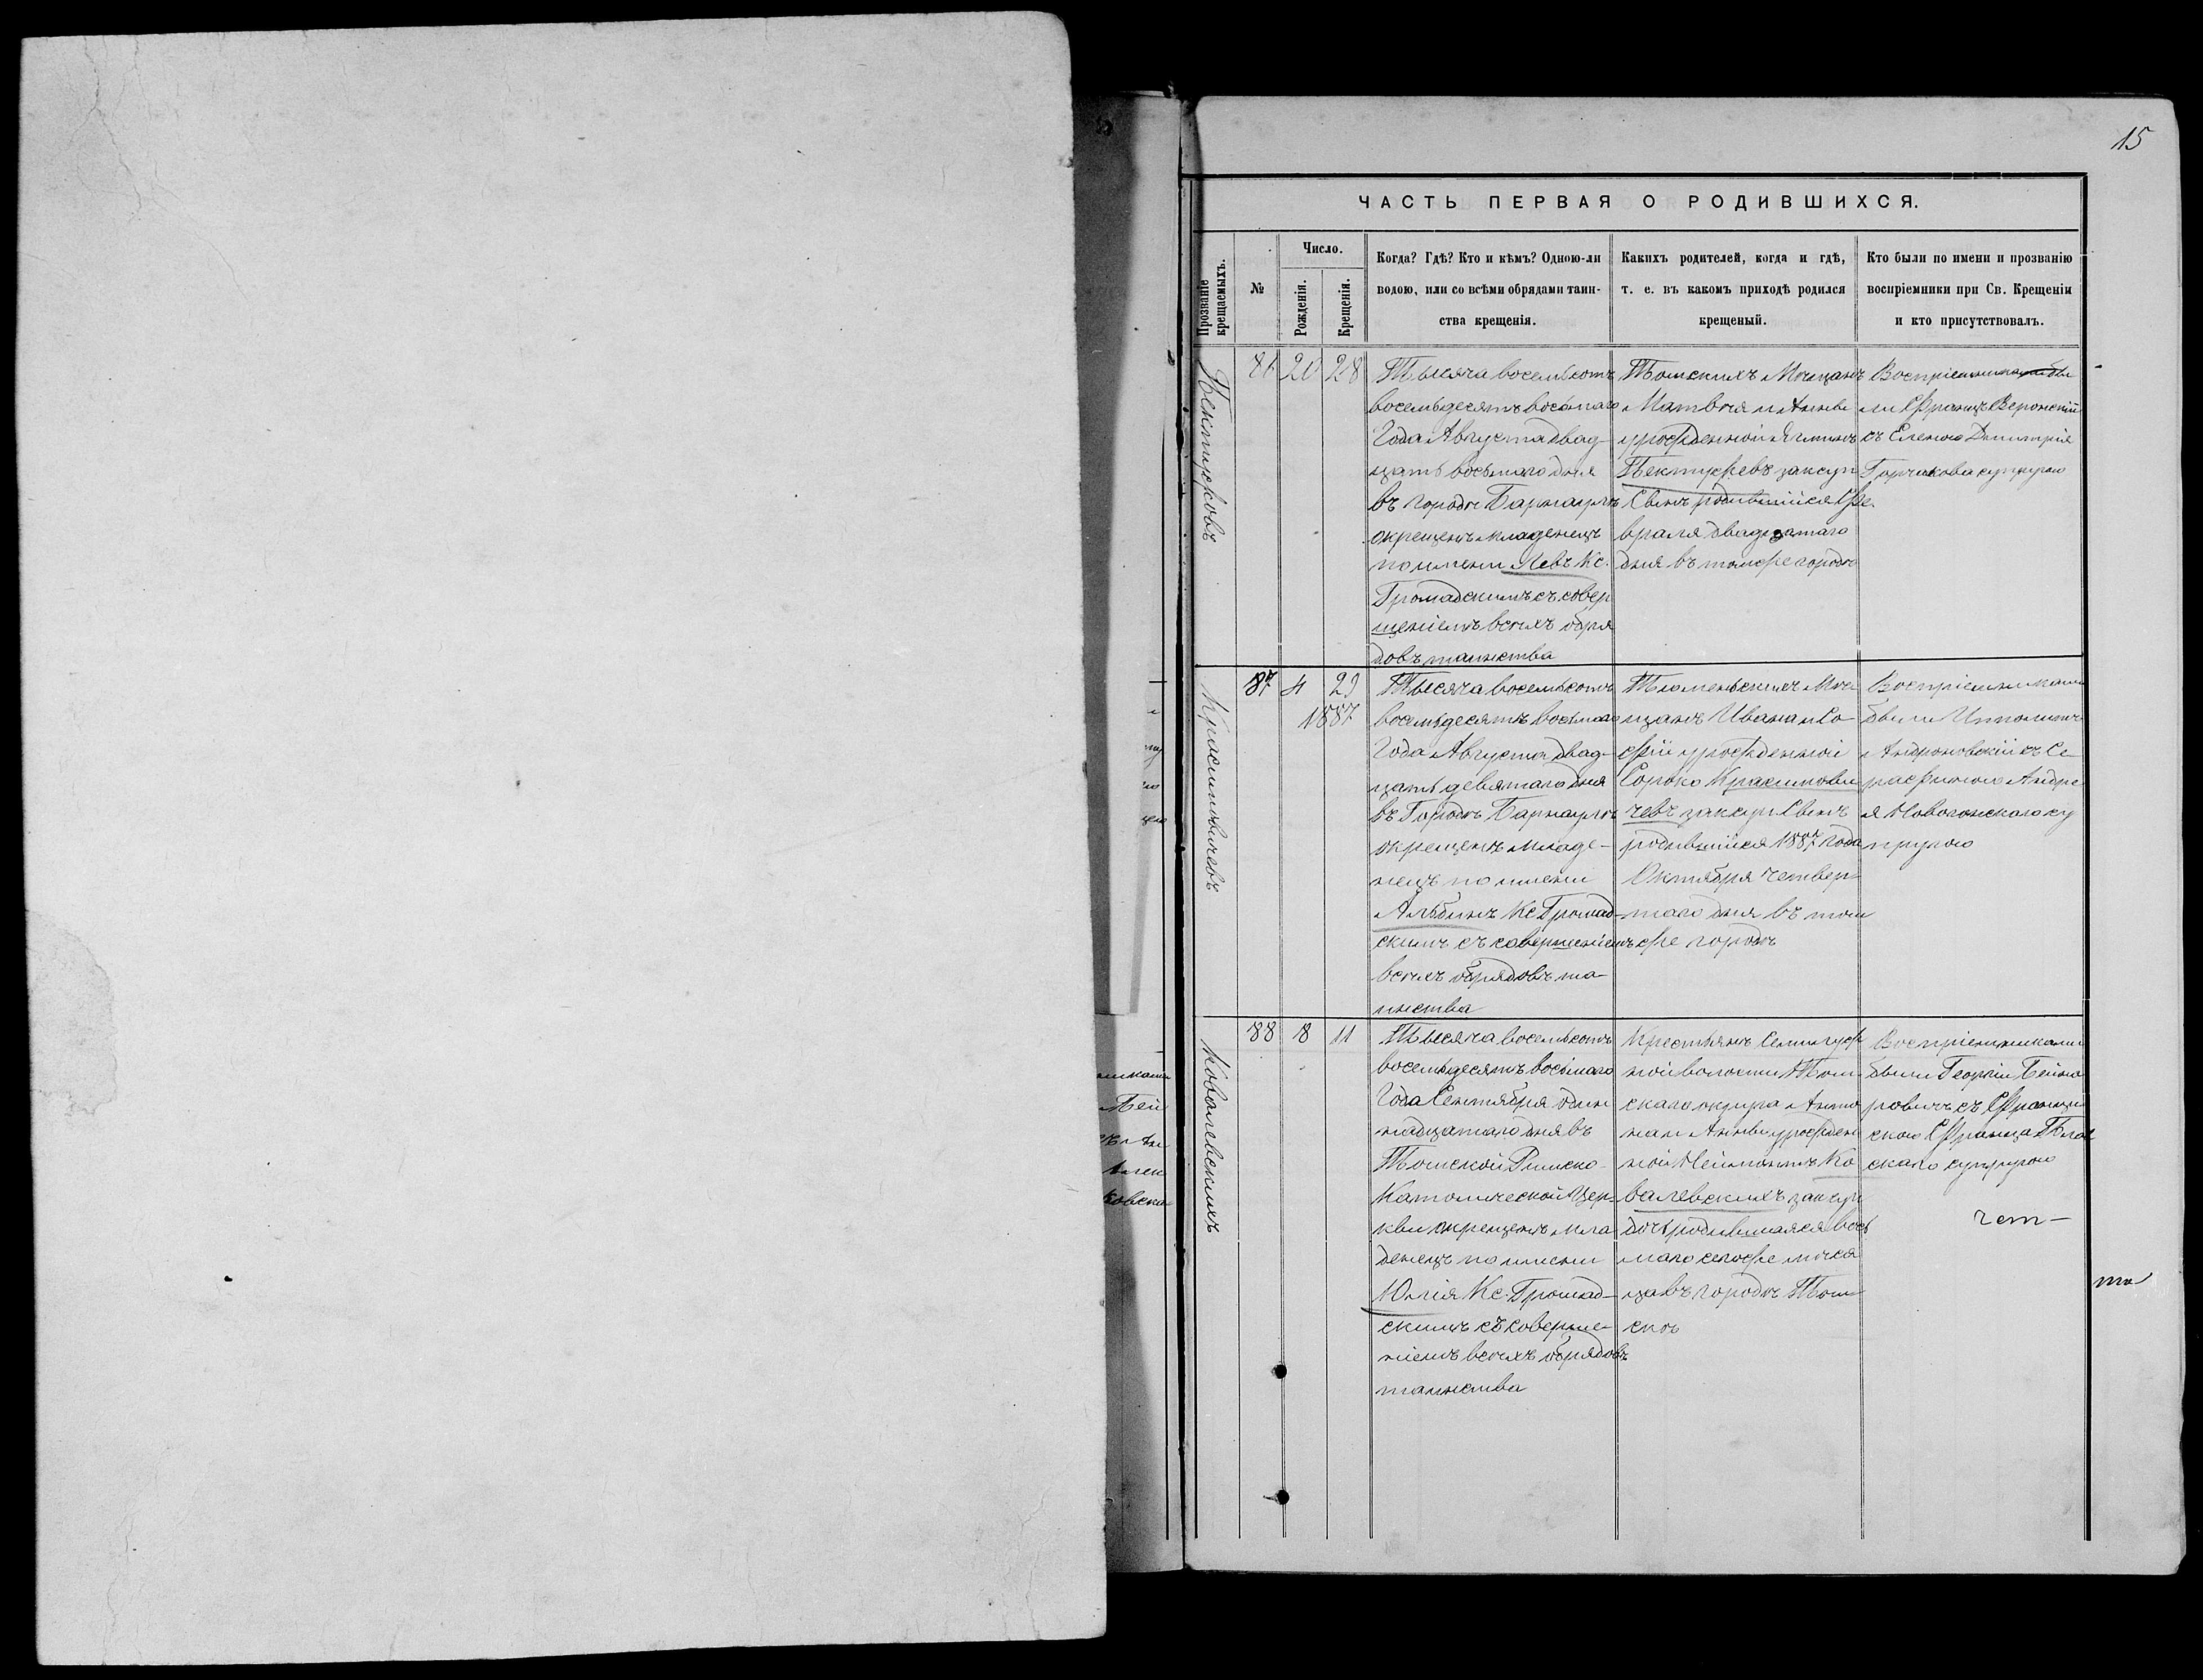 15
ЧАСТЬ ПЕРВАЯ О РОДИВШИХСЯ.
Прозваніе крещаемыхъ.
№
Число.
Рожденія.
Крещенія.
Когда? Гдѣ? Кто и кѣмъ? Одною-ли
водою, или со всѣми обрядами таин-
ства крещенія.
Какихъ родителей, когда и гдѣ,
т. е. въ какомъ приходѣ родился
крещеный.
Кто были по имени и прозванію
воспріемники при Св. Крещеніи
и кто присутствовалъ.
86 20 28
Тысяча восемьсотъ
восемьдесятъ восьмаго
Года Августа двад-
цать восьмаго дня
въ городѣ Барнаулѣ
окрещенъ младенецъ
по имени Левъ Кс.
Громадскимъ съ совер
шеніемъ всѣхъ обря
довъ таинства
Томскихъ Мѣщанъ
Матвѣя и Анны
урожденной
закон
Сынъ родившійся Фе
враля двадцатаго
дня въ томже городѣ
Воспріемниками бы
ли Францъ
съ Еленою Дмитрія
Горчакова супругою
Красимовичевъ
87 4 29
1887
Тысяча восемьсотъ
восемьдесятъ восьмаго
Года Августа двад-
цать девятаго дня
въ Городѣ Барнаулѣ
окрещенъ младе-
нецъ по имени
Альбинъ Кс. Громад-
скимъ съ совершеніемъ
всѣхъ обрядовъ та-
инства
Тюменьскихъ Мѣ
щанъ Ивана и Со-
фіи урожденной
Сороко Красимови
чевъ зак. Сынъ
родившійся 1887 года
Октября четвер-
таго дня въ том
же городѣ
Воспріемниками
были Ипполитъ
Андроновскій съ Се
рафиною Андре
я су
пругою
Ковалевскихъ
88 8 11
Тысяча восемьсотъ
восемьдесятъ восьмаго
Года Сентября один
надцатаго дня въ
Томской Римско-
Католической Цер-
кви окрещенъ мла
денецъ по имени
Юлія Кс. Громад-
скимъ съ соверше-
ніемъ всѣхъ обрядовъ
таинства
Крестьянъ Семилуж
ной волости Том
скаго округа Анто
на и Анны урожден
ной Ко
валевскихъ закон
дочь родившаяся вось
маго сегоже мѣся
ца въ городѣ Том
скѣ
Воспріемниками
были Георгій Бейна
ровичъ съ Францис
скою Франца
скаго супругою
чет-
та